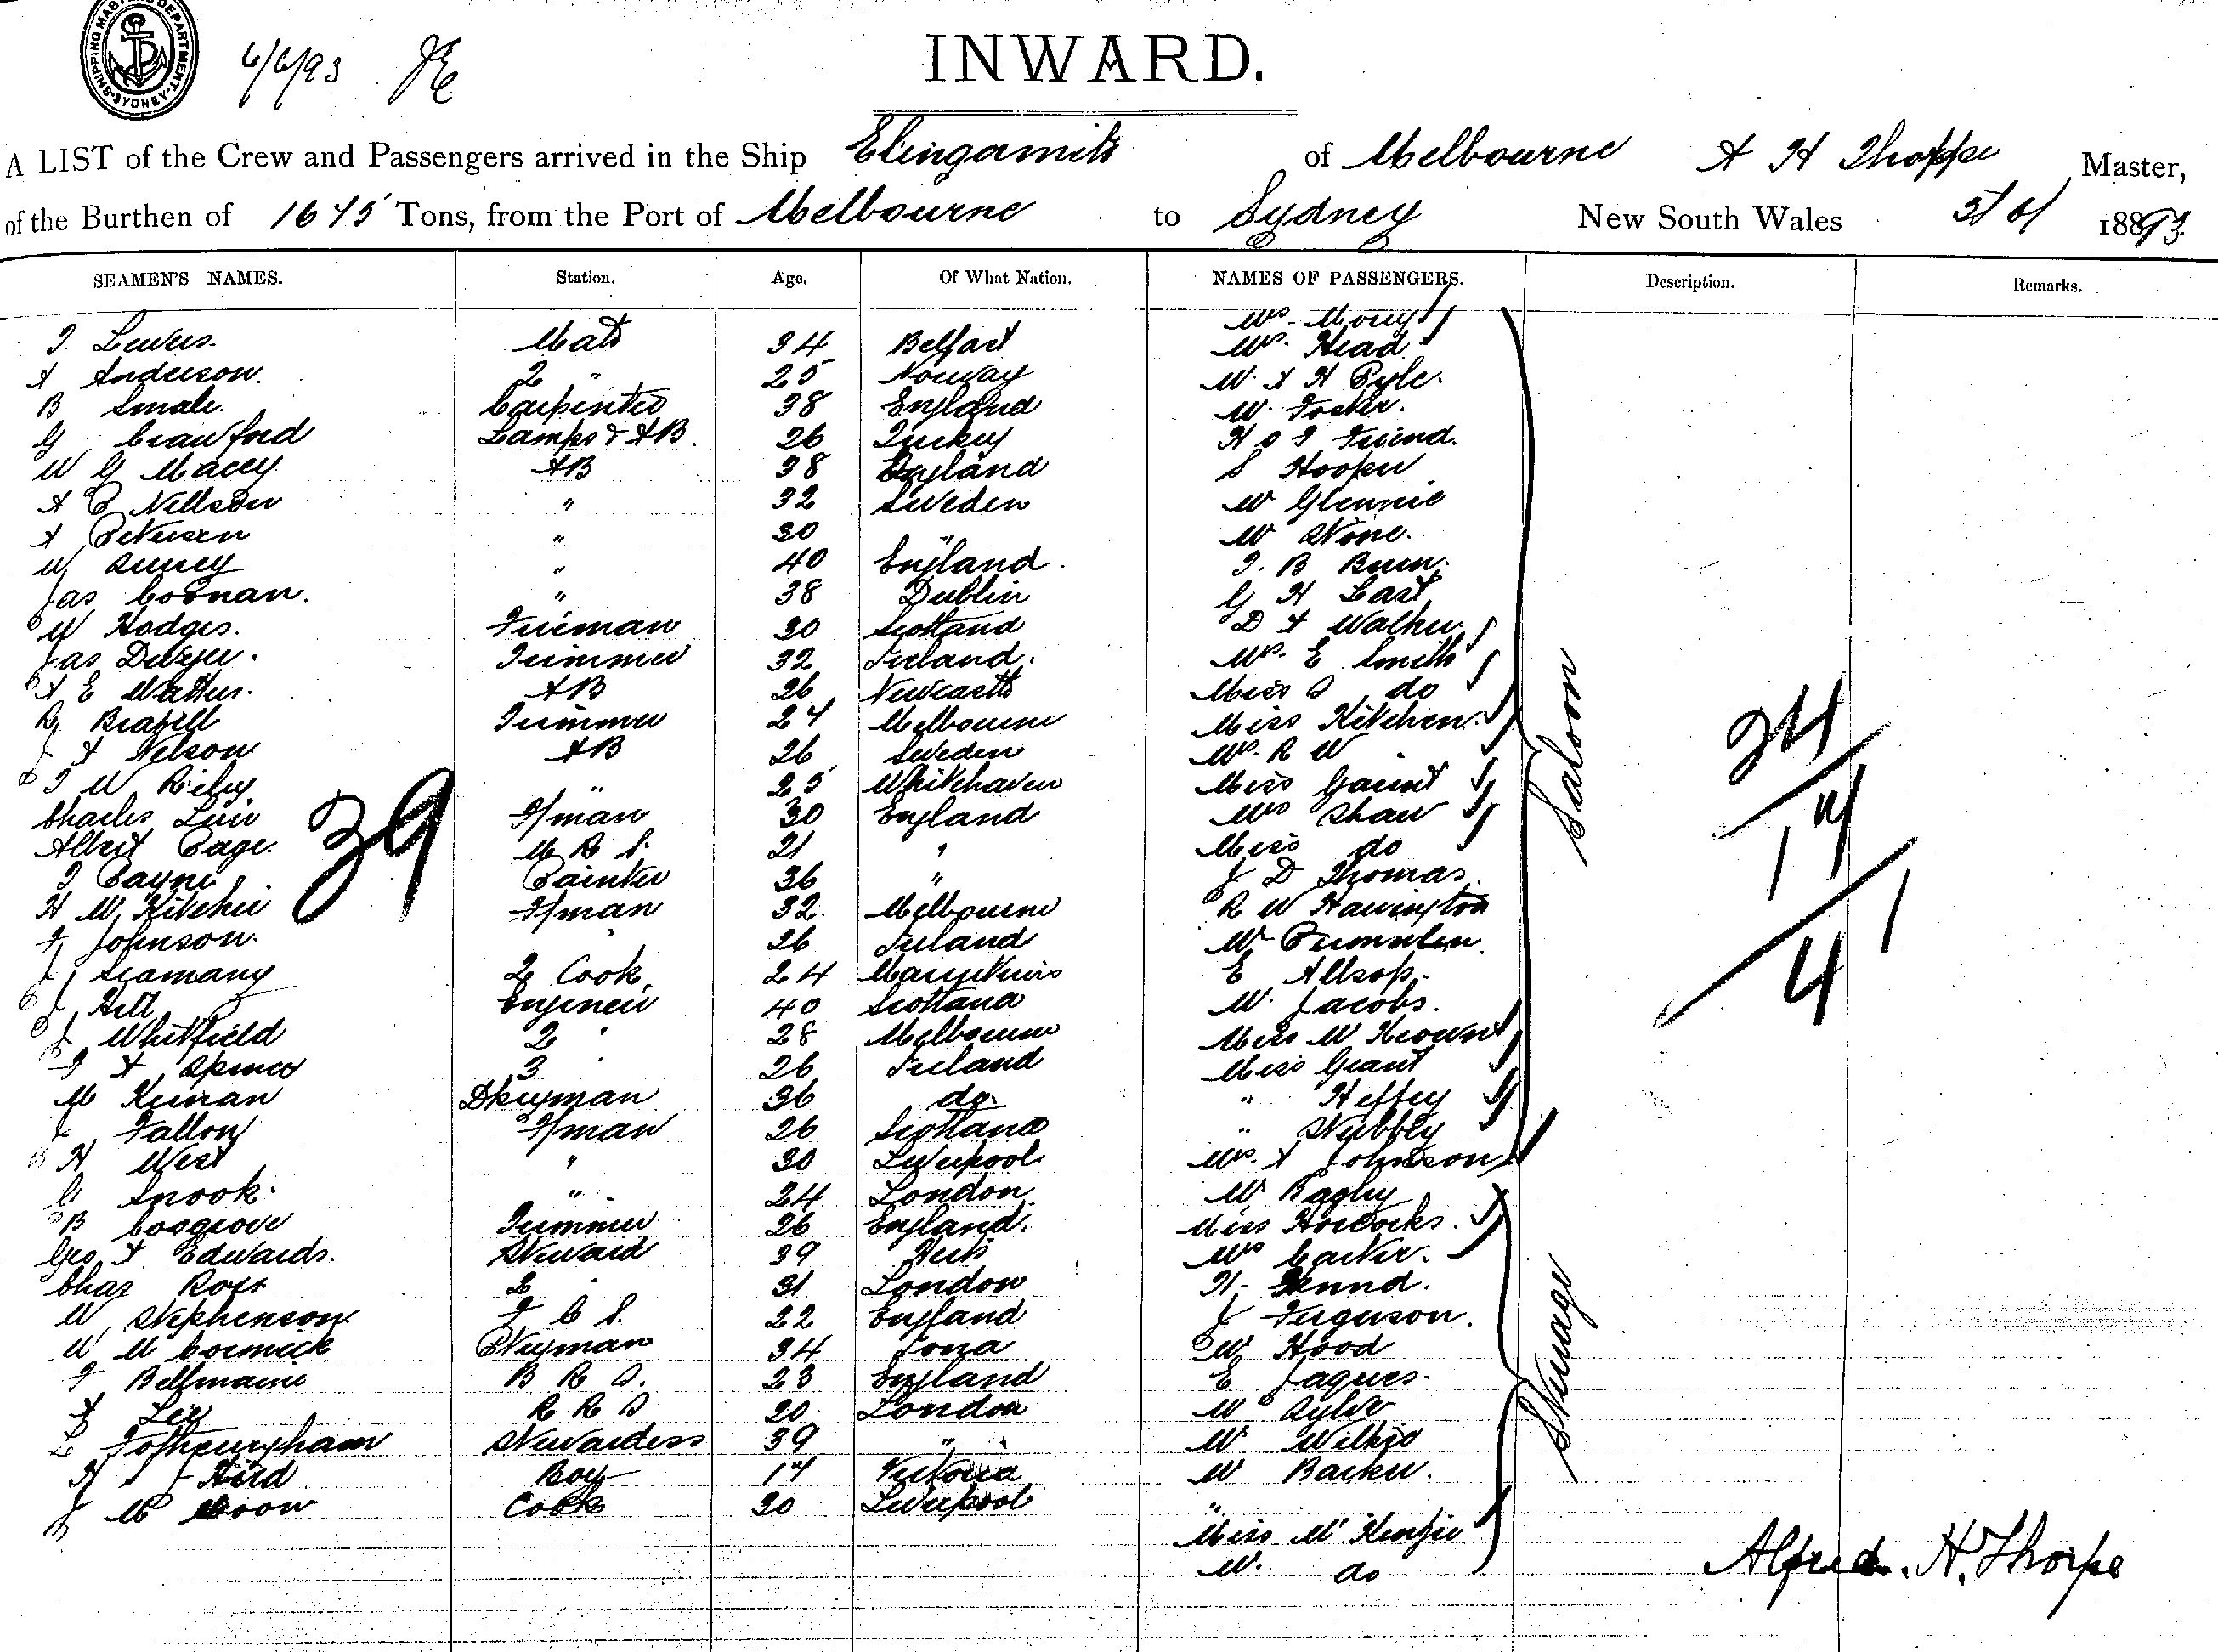 SHIPPING MASTER'S DEPARTMENT SYDNEY
6/6/93
INWARD.
A LIST of the Crew and Passengers arrived in the Ship Elingamite of Melbourne A H Thorpe Master,
of the Burthen of 1675 Tons, from the Port of Melbourne to Sydney New South Wales 1893
SEAMEN'S NAMES. Station. Age. Of What Nation. NAMES OF PASSENGERS. Description. Remarks.
Mrs
Mate 34 Belfast Mrs. Head
A Anderson. 2 " 25 Norway W. A H Pyle.
B Smale. Carpenter 38 England W. Foster.
G Crawford Lamps & AB. 26 Turkey Friend.
W G Macey AB 38 England S Hooper
A C Nillson " 32 Sweden W Glennie
A Petersen " 30 " W Stone.
W " 40 England. T. B Burn.
Jas Coonan. " 38 Dublin G H East
W Hodges. Fireman 30 Scotland D A Walker
Jas Dwyer. Trimmer 32 Ireland. Mrs. E Smith
A E Watters. AB 26 Newcastle Miss do
Brazell Trimmer 24 Melbourne Miss Kitchen
J A Nelson AB 26 Sweden Mr. R W
T W Riley " 25 Whitehaven Miss Gaunt
Charles F/man 30 England Mrs Shaw
Albert Page. M R S. 21 " Miss do
T Payne Painter 36 " J D Thomas.
H W Ritchie F/man 32. Melbourne R W Harrington
Johnson. " 26 Ireland W
J Seamany 2 Cook 24 E Allsop.
J Hill Engineer 40 Scotland W. Jacobs.
J Whitfield 2 " 28 Melbourne Miss
T A Spence 3 " 26 Ireland Miss Grant
M Keirnan Dkeyman 36 do. " Heffey
J Fallon F/man 26 Scotland " Stubbly
H West " 30 Liverpool Mrs. A Johnson
C Snook. " 24 London W. Bagley
B Cosgrove Trimmer 26 England. Miss Horrocks.
Geo A Edwards. Steward 39 Mrs Carter.
Chas Ross 2 " 31 London H.
W Stephenson F C S. 22 England J Ferguson.
W McCormick P/keyman 34 Iona W Hood
F Bellmaine B R S. 23 England E Jaques.
A Lee R R S 20 London W
L Fotheringham Stewardess 39 " W. Wilkie
H J Hird Boy 17 Victoria W Barker.
J M Moon Cook 20 Liverpool "
Miss McKenzie
W. do
39
Saloon
Steerage
24
14
1
4
1
Alfred. H. Thorpe